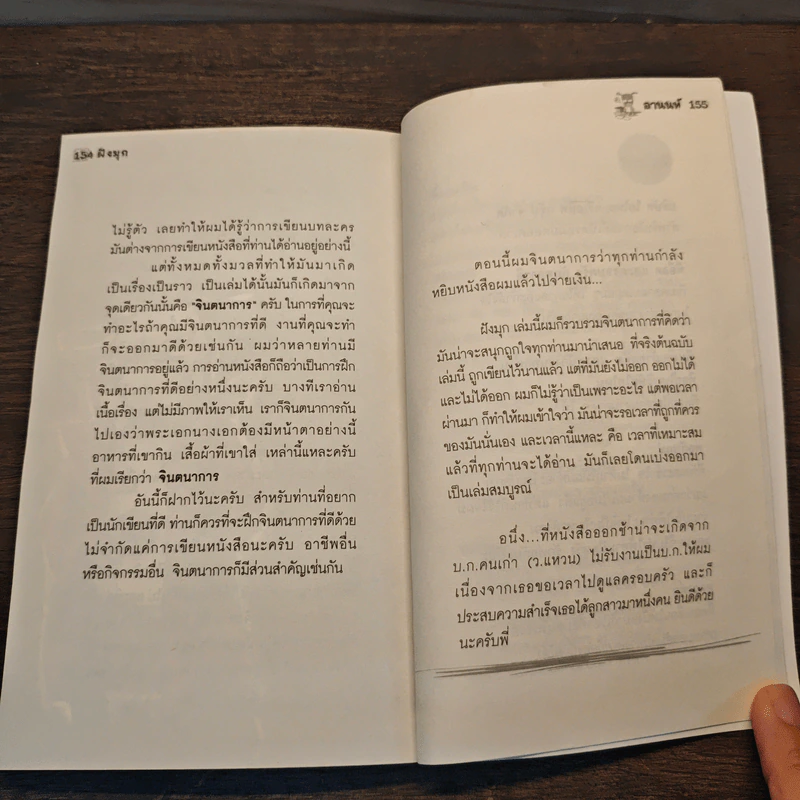 154 ฝังมุก
ไม่รู้ตัว เลยทำให้ผมได้รู้ว่าการเขียนบทละคร
มันต่างจากการเขียนหนังสือที่ท่านได้อ่านอยู่อย่างนี้
แต่ทั้งหมดทั้งมวลที่ทำให้มันมาเกิด
เป็นเรื่องเป็นราว เป็นเล่มได้นั้นมันก็เกิดมาจาก
จุดเดียวกันนั้นคือ "จินตนาการ" ครับ ในการที่คุณจะ
ทำอะไรถ้าคุณมีจินตนาการที่ดี งานที่คุณจะทำ
ก็จะออกมาดีด้วยเช่นกัน ผมว่าหลายท่านมี
จินตนาการอยู่แล้ว การอ่านหนังสือก็ถือว่าเป็นการฝึก
จินตนาการที่ดีอย่างหนึ่งนะครับ บางทีเราอ่าน
เนื้อเรื่อง แต่ไม่มีภาพให้เราเห็น เราก็จินตนาการกัน
ไปเองว่าพระเอกนางเอกต้องมีหน้าตาอย่างนี้
อาหารที่เขากิน เสื้อผ้าที่เขาใส่ เหล่านี้แหละครับ
ที่ผมเรียกว่า จินตนาการ
อันนี้ก็ฝากไว้นะครับ สำหรับท่านที่อยาก
เป็นนักเขียนที่ดี ท่านก็ควรที่จะฝึกจินตนาการที่ดีด้วย
ไม่จำกัดแค่การเขียนหนังสือนะครับ อาชีพอื่น
หรือกิจกรรมอื่น จินตนาการก็มีส่วนสำคัญเช่นกัน
อานนท์ 155
ตอนนี้ผมจินตนาการว่าทุกท่านกำลัง
หยิบหนังสือผมแล้วไปจ่ายเงิน...
ฝังมุก เล่มนี้ผมก็รวบรวมจินตนาการที่คิดว่า
มันน่าจะสนุกถูกใจทุกท่านมานำเสนอ ที่จริงต้นฉบับ
เล่มนี้ ถูกเขียนไว้นานแล้ว แต่ที่มันยังไม่ออก ออกไม่ได้
และไม่ได้ออก ผมก็ไม่รู้ว่าเป็นเพราะอะไร แต่พอเวลา
ผ่านมา ก็ทำให้ผมเข้าใจว่า มันน่าจะรอเวลาที่ถูกที่ควร
ของมันนั่นเอง และเวลานี้แหละ คือ เวลาที่เหมาะสม
แล้วที่ทุกท่านจะได้อ่าน มันก็เลยโดนเบ่งออกมา
เป็นเล่มสมบูรณ์
อนึ่ง...ที่หนังสือออกช้าน่าจะเกิดจาก
บ.ก.คนเก่า (ว.แหวน) ไม่รับงานเป็นบ.ก.ให้ผม
เนื่องจากเธอขอเวลาไปดูแลครอบครัว และก็
ประสบความสำเร็จเธอได้ลูกสาวมาหนึ่งคน ยินดีด้วย
นะครับพี่